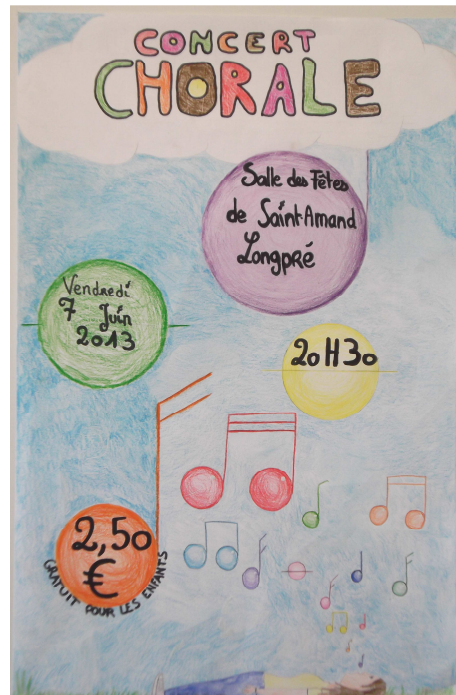 CONCERT
CHORALE
Salle des Fêtes
de Saint-Amand
Longpré
Vendredi
7 Juin
2013
20H30
2,50
€
GRATUIT POUR LES ENFANTS